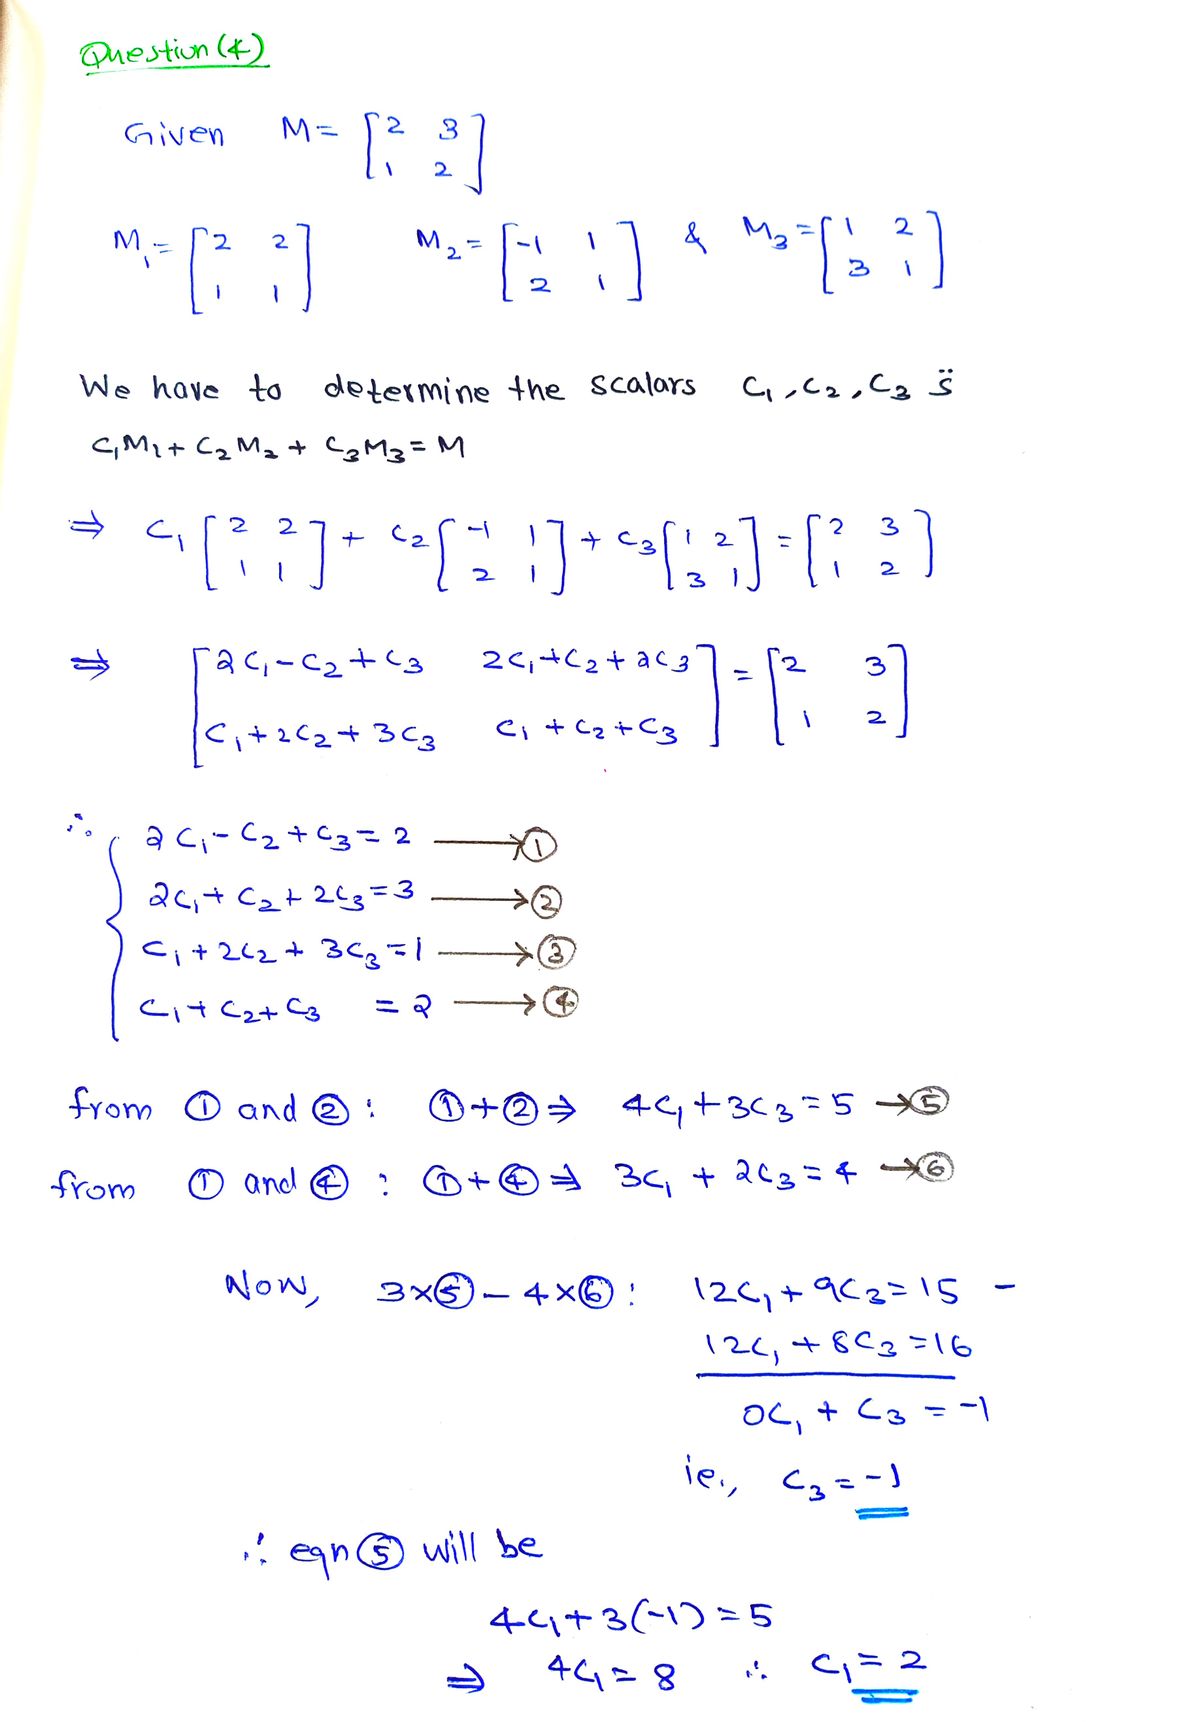 Question (4)
Given M = [2 3
1 2]
M₁ = [2 2
1 1] M₂ = [-1 1
2 1] & M₃ = [1 2
3 1]
We have to determine the scalars C₁, C₂, C₃ s̈
C₁M₁ + C₂M₂ + C₃M₃ = M
⇒ C₁[2 2
1 1] + C₂[-1 1
2 1] + C₃[1 2
3 1] = [2 3
1 2]
⇒ [2C₁ - C₂ + C₃ 2C₁ + C₂ + 2C₃
C₁ + 2C₂ + 3C₃ C₁ + C₂ + C₃] = [2 3
1 2]
∴ { 2C₁ - C₂ + C₃ = 2 → ①
2C₁ + C₂ + 2C₃ = 3 → ②
C₁ + 2C₂ + 3C₃ = 1 → ③
C₁ + C₂ + C₃ = 2 → ④
from ① and ② : ① + ② ⇒ 4C₁ + 3C₃ = 5 → ⑤
from ① and ④ : ① + ④ ⇒ 3C₁ + 2C₃ = 4 → ⑥
Now, 3×⑤ - 4×⑥ : 12C₁ + 9C₃ = 15 -
12C₁ + 8C₃ = 16
0C₁ + C₃ = -1
ie., C₃ = -1
∴ eqn ⑤ will be
4C₁ + 3(-1) = 5
⇒ 4C₁ = 8 ∴ C₁ = 2